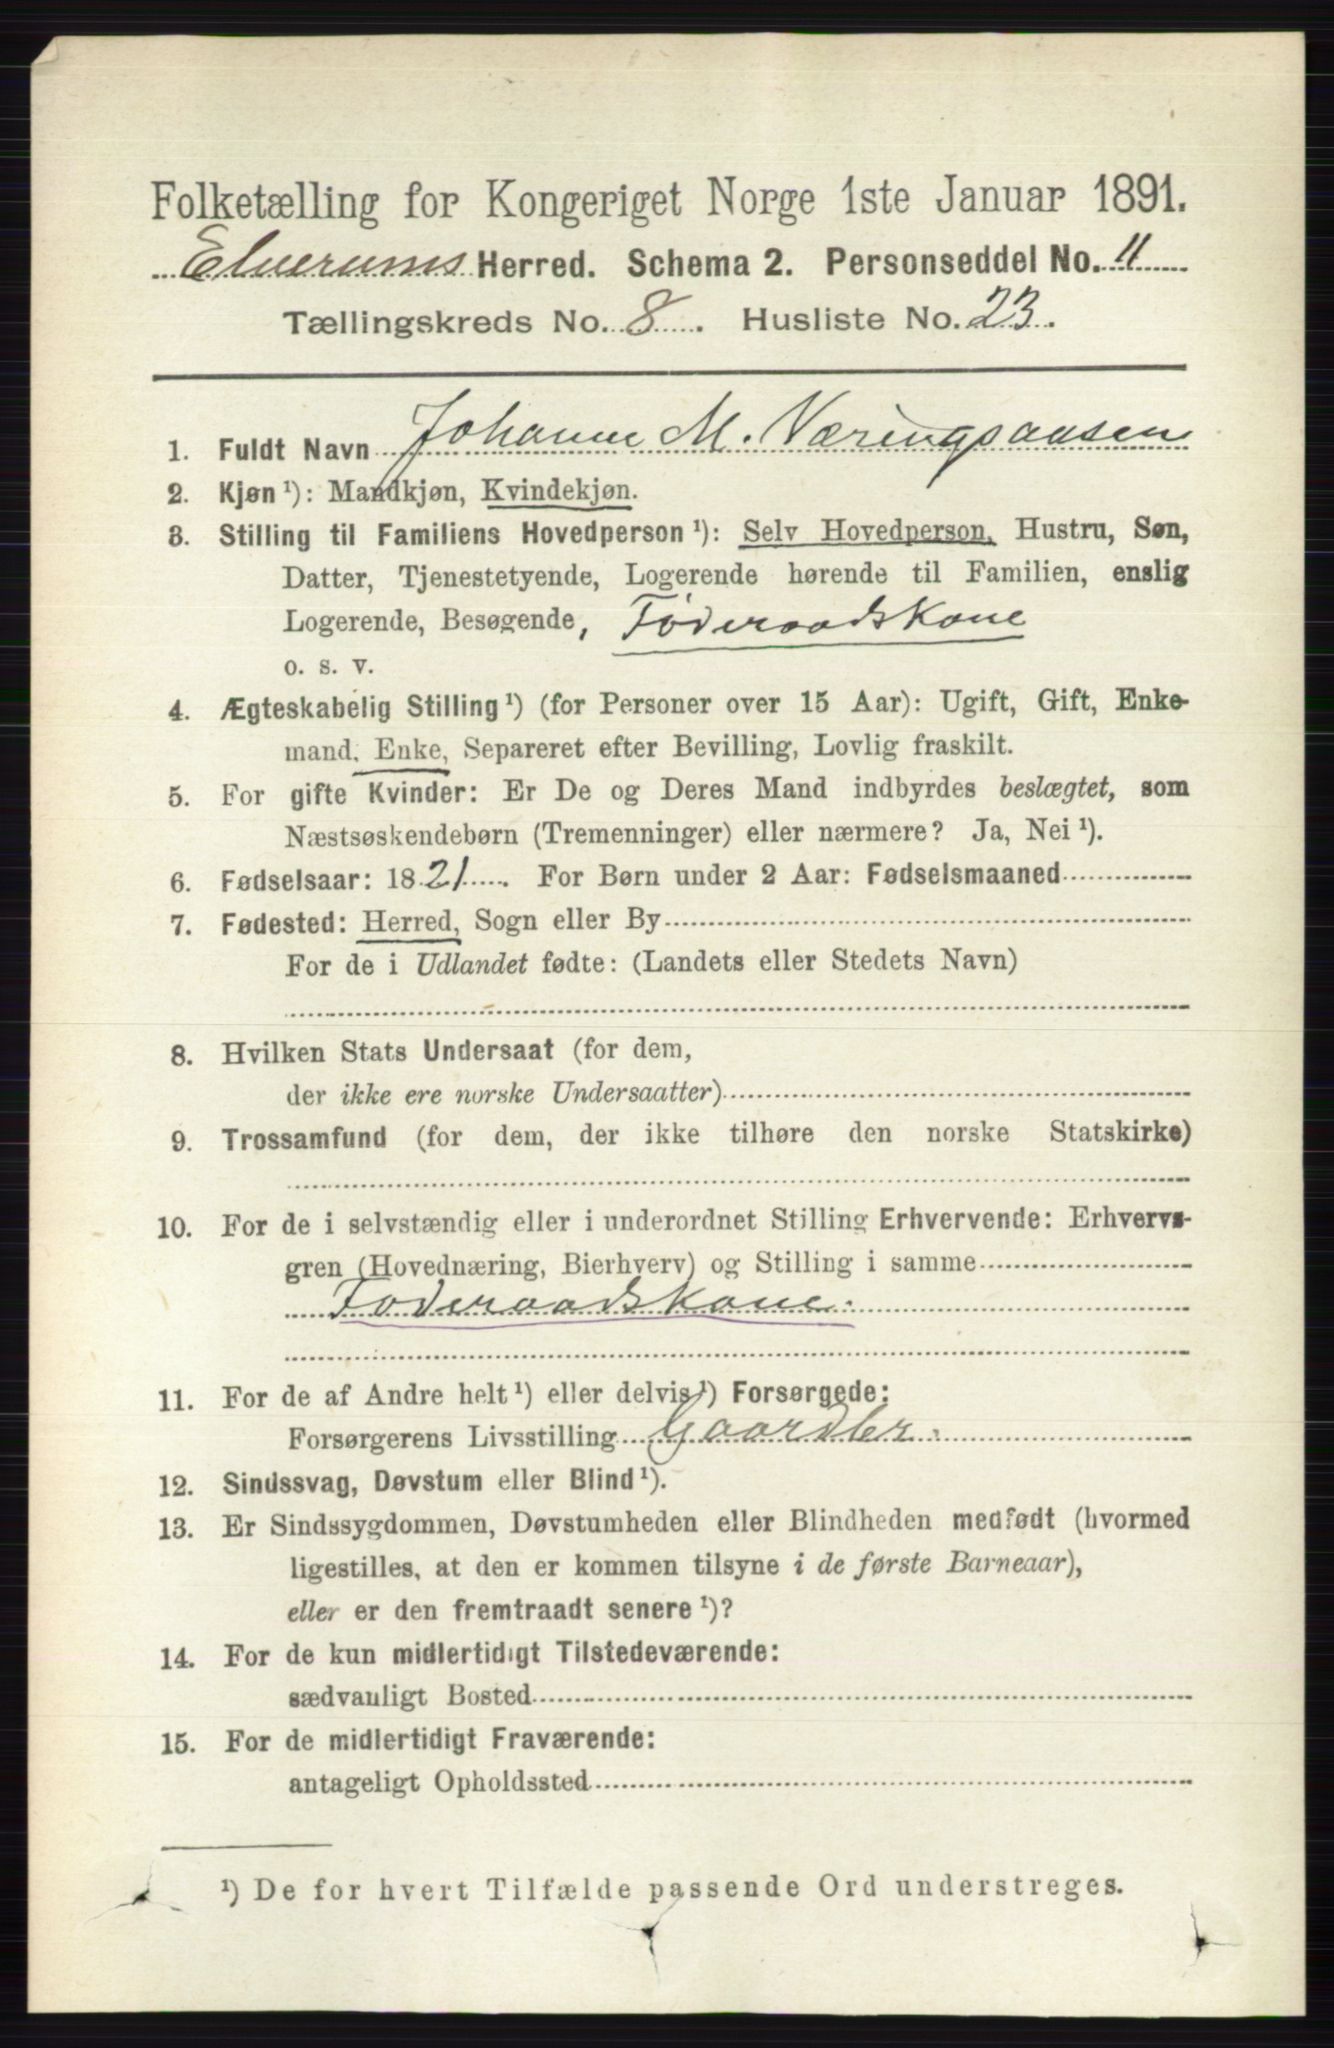 Folketælling for Kongeriget Norge 1ste Januar 1891.
Elverums Herred. Schema 2. Personseddel No. 11
Tællingskreds No. 8. Husliste No. 23.
1. Fuldt Navn Johanne M. Væringsaasen
2. Kjøn ¹): Mandkjøn, Kvindekjøn.
3. Stilling til Familiens Hovedperson ¹): Selv Hovedperson, Hustru, Søn,
Datter, Tjenestetyende, Logerende hørende til Familien, enslig
Logerende, Besøgende, Føderaadskone
o. s. v.
4. Ægteskabelig Stilling ¹) (for Personer over 15 Aar): Ugift, Gift, Enke-
mand, Enke, Separeret efter Bevilling, Lovlig fraskilt.
5. For gifte Kvinder: Er De og Deres Mand indbyrdes beslægtet, som
Næstsøskendebørn (Tremenninger) eller nærmere? Ja, Nei ¹).
6. Fødselsaar: 1821. For Børn under 2 Aar: Fødselsmaaned
7. Fødested: Herred, Sogn eller By
For de i Udlandet fødte: (Landets eller Stedets Navn)
8. Hvilken Stats Undersaat (for dem,
der ikke ere norske Undersaatter)
9. Trossamfund (for dem, der ikke tilhøre den norske Statskirke)
10. For de i selvstændig eller i underordnet Stilling Erhvervende: Erhvervs-
gren (Hovednæring, Bierhverv) og Stilling i samme
Føderaadskone.
11. For de af Andre helt ¹) eller delvis ¹) Forsørgede:
Forsørgerens Livsstilling Gaardbr.
12. Sindssvag, Døvstum eller Blind ¹).
13. Er Sindssygdommen, Døvstumheden eller Blindheden medfødt (hvormed
ligestilles, at den er kommen tilsyne i de første Barneaar),
eller er den fremtraadt senere ¹)?
14. For de kun midlertidigt Tilstedeværende:
sædvanligt Bosted
15. For de midlertidigt Fraværende:
antageligt Opholdssted
¹) De for hvert Tilfælde passende Ord understreges.